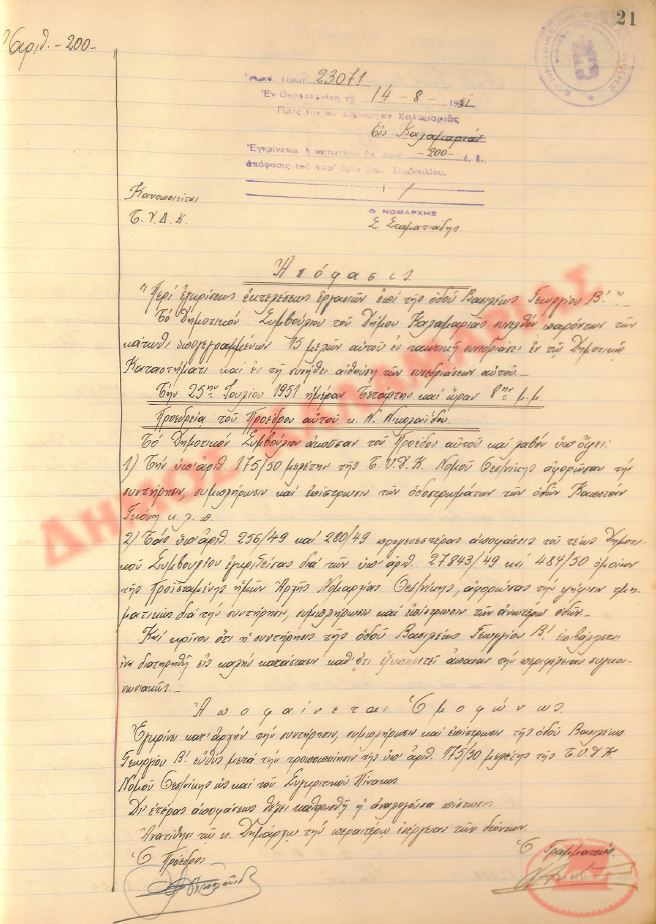 21
Ἀριθ. -200-
Ἀριθ. Πρωτ. 23071
Ἐν Θεσσαλονίκῃ τῇ 14 - 8 - 1951
Πρὸς τὸν κ. Δήμαρχον Καλαμαριᾶς
Εἰς Καλαμαριάν
Ἐγκρίνεται ἡ κατωτέρω ὑπ' ἀριθ. -200- ἐ. ἔ.
ἀπόφασις τοῦ παρ' ὑμῖν Δημ. Συμβουλίου.
Κοινοποιεῖται
Τ.Υ.Δ.Κ.
Ο ΝΟΜΑΡΧΗΣ
Σ. Σταματιάδης
Ἀπόφασις
"Περὶ ἐγκρίσεως ἐκτελέσεως ἐργασιῶν ἐπὶ τῆς ὁδοῦ Βασιλέως Γεωργίου Β'."
Τὸ Δημοτικὸν Συμβούλιον τοῦ Δήμου Καλαμαριᾶς συνελθὸν παρόντων τῶν
κάτωθι ὑπογεγραμμένων 15 μελῶν αὐτοῦ ἐν τακτικῇ συνεδριάσει ἐν τῷ Δημοτικῷ
Καταστήματι καὶ ἐν τῇ συνήθει αἰθούσῃ τῶν συνεδριάσεων αὐτοῦ.
Τὴν 25ην Ἰουλίου 1951 ἡμέραν Τετάρτην καὶ ὥραν 8ην μ.μ.
Προεδρείᾳ τοῦ Προέδρου αὐτοῦ κ. Ν. Νικολαΐδου.
Τὸ Δημοτικὸν Συμβούλιον ἀκοῦσαν τοῦ Προέδρου αὐτοῦ καὶ λαβὸν ὑπ' ὄψει:
1) Τὴν ὑπ' ἀριθ. 175/50 μελέτην τῆς Τ.Υ.Δ.Κ. Νομοῦ Θεσ/νίκης ἀφορῶσαν τὴν
συντήρησιν, συμπλήρωσιν καὶ ἐπίστρωσιν τῶν ὁδοστρωμάτων τῶν ὁδῶν Καπετάν
Γκόνη κ.λ.π.
2) Τὰς ὑπ' ἀριθ. 256/49 καὶ 280/49 προγενεστέρας ἀποφάσεις τοῦ τέως Δημοτι-
κοῦ Συμβουλίου ἐγκριθείσας διὰ τῶν ὑπ' ἀριθ. 27843/49 καὶ 484/50 ὁμοίων
τῆς Προϊσταμένης ἡμῶν Ἀρχῆς Νομαρχίας Θεσ/νίκης, ἀφορώσας τὴν ψήφισιν τμη-
ματικῶς διὰ τὴν συντήρησιν, συμπλήρωσιν καὶ ἐπίστρωσιν τῶν ἀνωτέρω ὁδῶν.-
Καὶ κρῖνον ὅτι ἡ συντήρησις τῆς ὁδοῦ Βασιλέως Γεωργίου Β'. ἐπιβάλλεται
ἵνα διατηρηθῇ εἰς καλὴν κατάστασιν καθ' ὅτι ἐξυπηρετεῖ ἅπασαν τὴν περιφέρειαν συγκοι-
νωνιακῶς.-
Ἀποφαίνεται Ὁμοφώνως
Ἐγκρίνει κατ' ἀρχὴν τὴν συντήρησιν, συμπλήρωσιν καὶ ἐπίστρωσιν τῆς ὁδοῦ Βασιλέως
Γεωργίου Β'. εὐθὺς μετὰ τὴν τροποποίησιν τῆς ὑπ' ἀριθ. 175/50 μελέτης τῆς Τ.Υ.Δ.Κ.
Νομοῦ Θεσ/νίκης ὡς καὶ τοῦ Συγκριτικοῦ Πίνακος.
Δι' ἑτέρας ἀποφάσεως θέλει καθορισθῇ ἡ ἀναλογοῦσα πίστωσις.
Ἀνατίθησι τῷ κ. Δημάρχῳ τὴν περαιτέρω ἐνέργειαν τῶν δεόντων.
Ὁ Πρόεδρος
Ὁ Γραμματεύς
ΔΗΜΟΣ ΚΑΛΑΜΑΡΙΑΣ